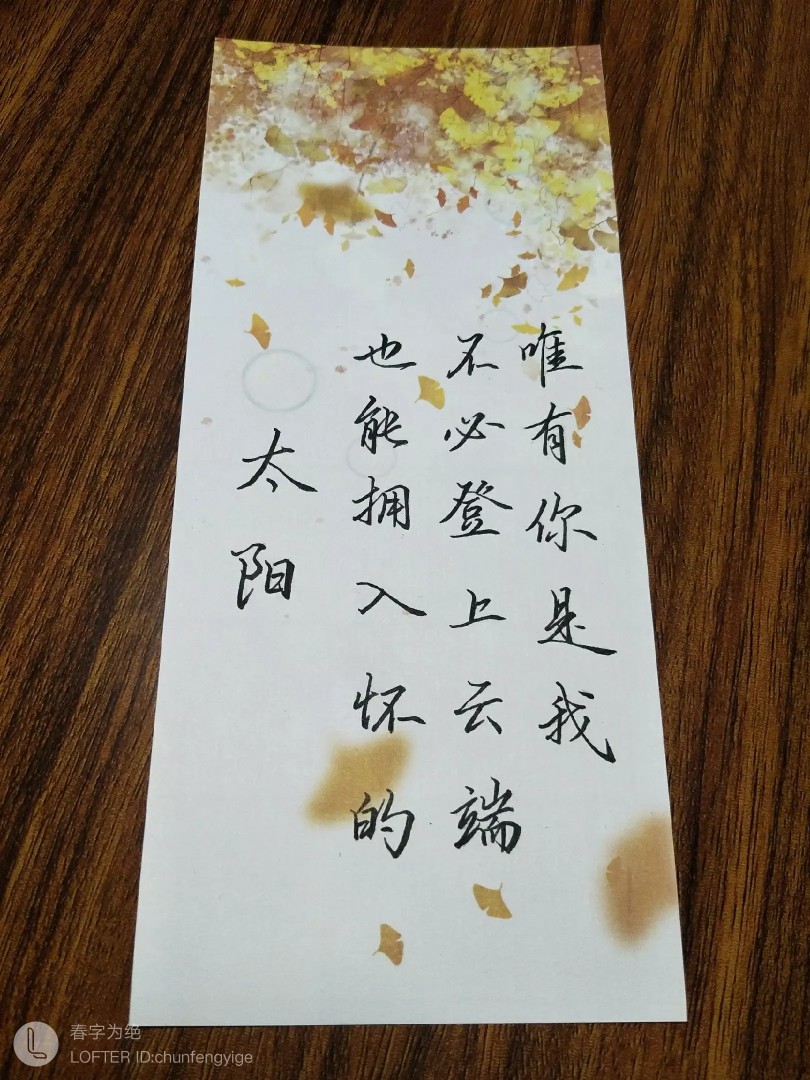 唯有你是我
不必登上云端
也能拥入怀的
太阳
春字为绝
LOFTER ID:chunfengyige